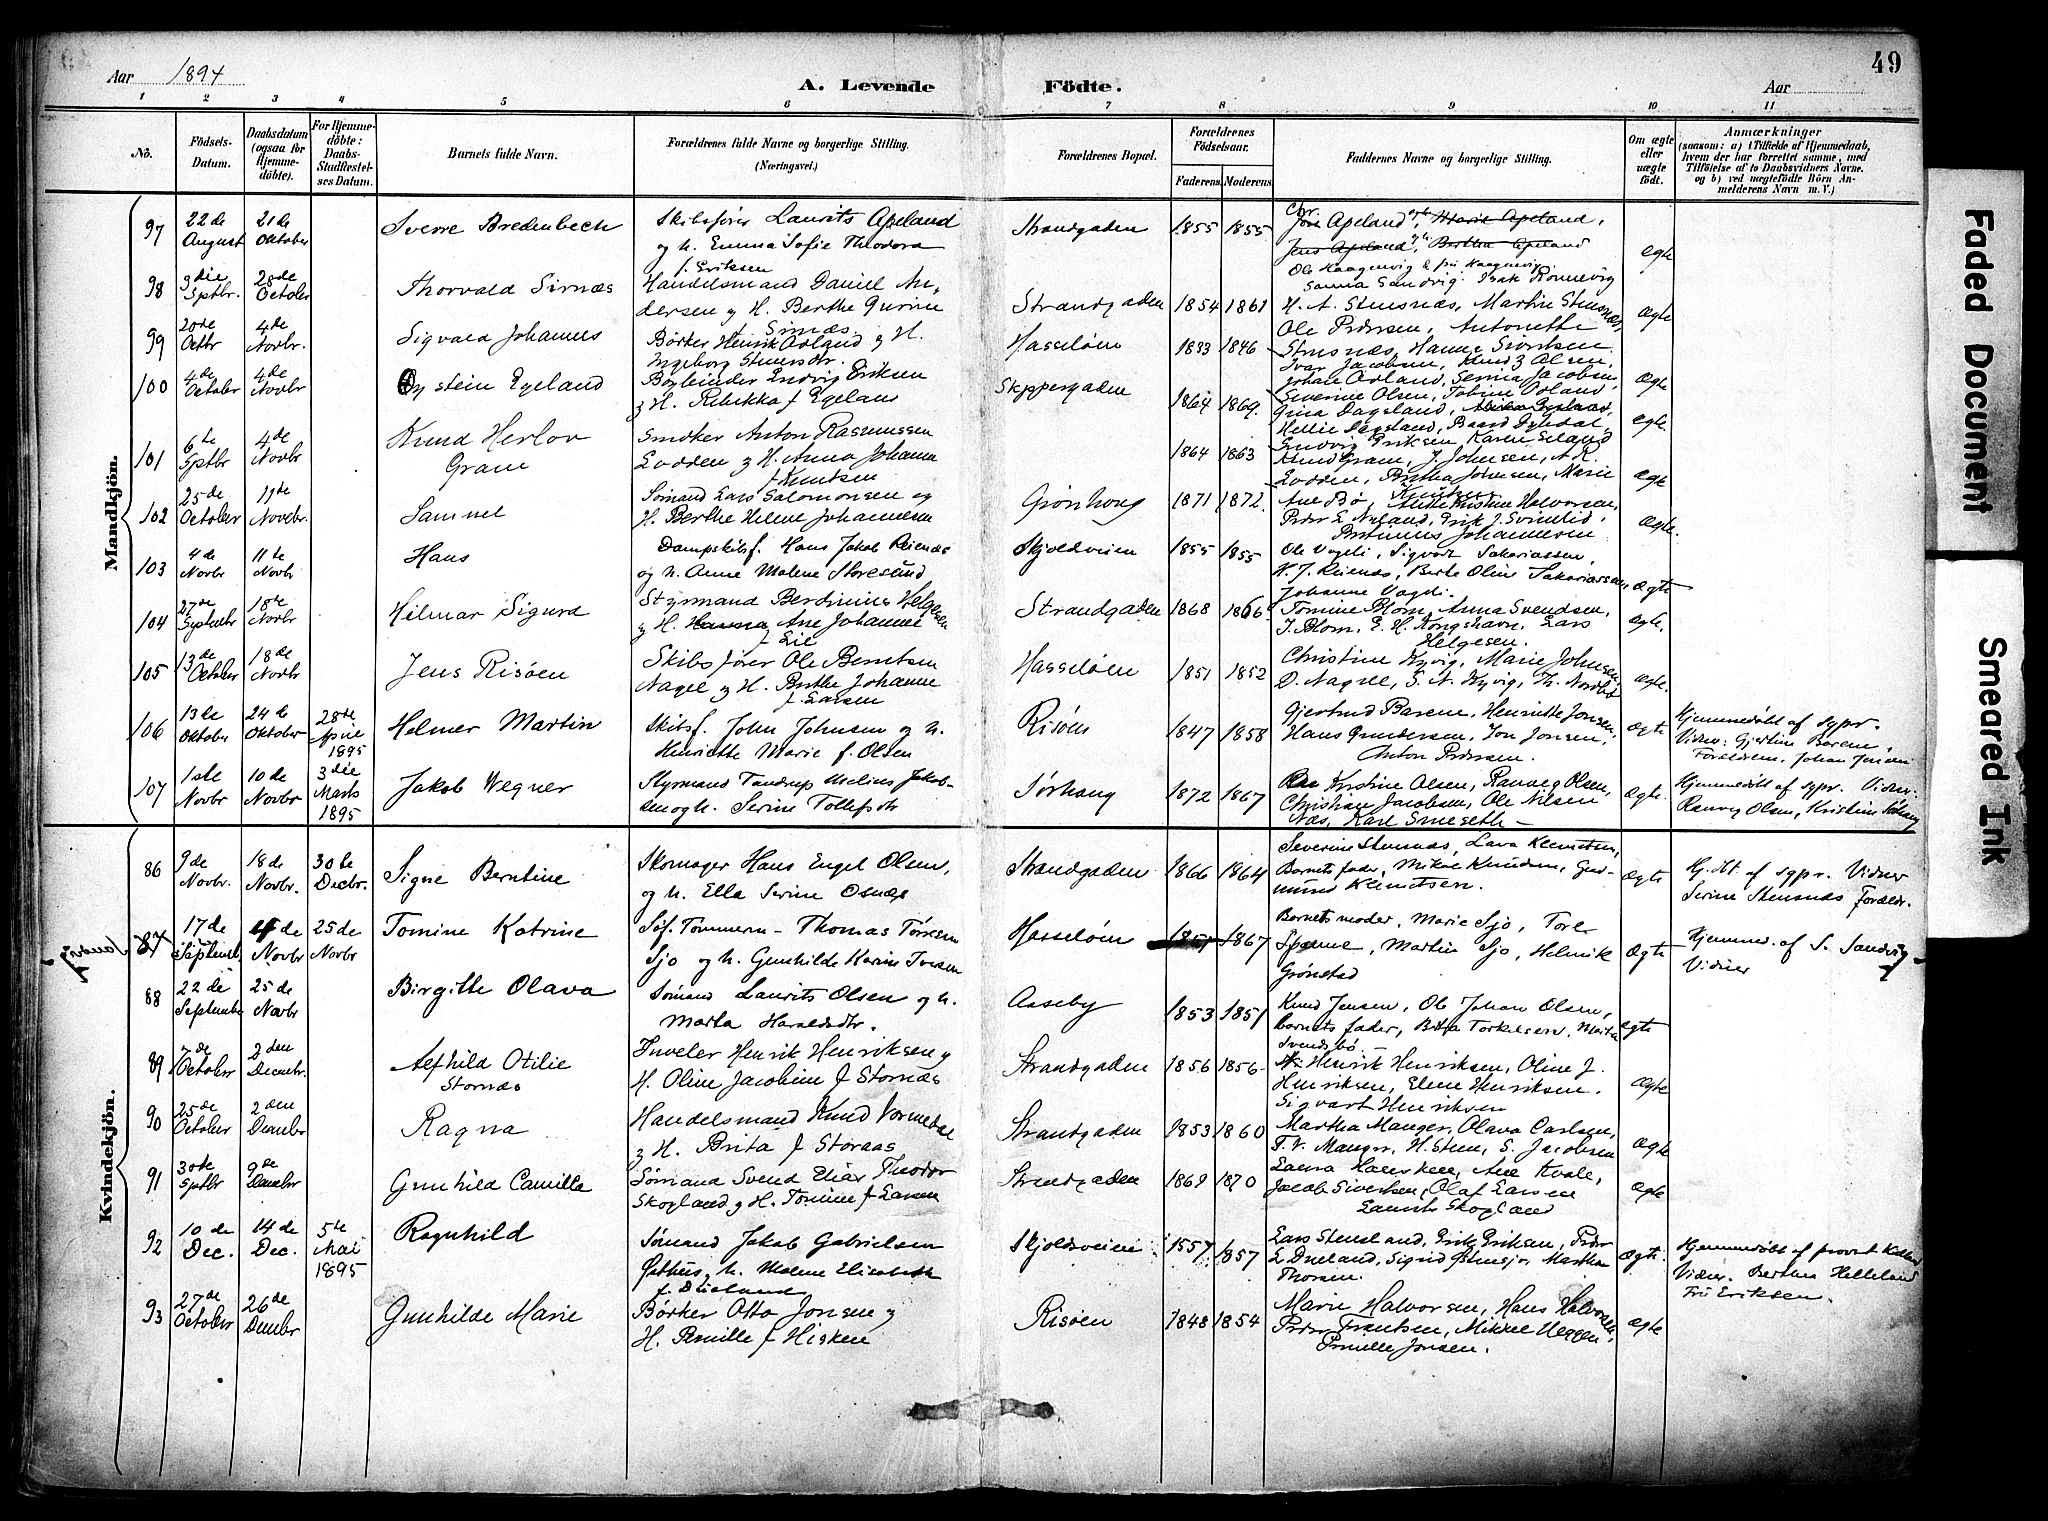 49
Aar 1894
A. Levende Födte.
Aar
1 2 3 4 5 6 7 8 9 10 11
No.
Födsels-Datum.
Daabsdatum (ogsaa for Hjemme-döbte).
For Hjemme-döbte: Daabs-Stadfæstel-ses Datum.
Barnets fulde Navn.
Forældrenes fulde Navne og borgerlige Stilling.
(Næringsvei.)
Forældrenes Bopæl.
Forældrenes Födselsaar.
Faderens. Moderens.
Faddernes Navne og borgerlige Stilling.
Om ægte eller uægte födt.
Anmærkninger
(saasom: a) i Tilfælde af Hjemmedaab,
hvem der har forrettet samme, med
Tilföielse af to Daabsvidners Navne.
og b) ved uægtefödte Börn An-
melderens Navn m. V.)
Mandkjön.
97 22de August 21de Oktober Sverre Bredenbech Skibsfører Laurits Apeland
og h. Emma Sofie Theodora
f. Eriksen
Strandgaden 1855 1855 Apeland
ægte
98 3die Sptbr. 28de October Thorvald Sirnæs Handelsmand Daniel An-
dersen og H. Berthe Gurine
Sirnæs
Strandgaden 1854 1861 H. A. Stensnæs, Martin Stensnæs,
Ole Pedersen, Antonette
Stensnæs, Hanne Sivertsen
ægte
99 20de Octbr 4de Novbr. Sigvald Johannes Børker Henrik Aaland & H.
Ingeborg Stensdtr.
Hasseløen 1833 1846 Ivar Jacobsen, Knud Z Olsen,
Johan Aaland, Serina Jacobsen,
ægte
100 4de October 4de Novbr Øystein Egeland Bogbinder Endvig Eriksen
& H. Rebekka f Egeland
Skippergaden 1864 1869
ægte.
101 6te Sptbr 4de Novbr Knud Herlov
Gram
Smelker Anton Rasmussen
Lodden & H. Anna Johanne
f Knutsen
1864 1863 Knud Gram, J. Johnsen, A. R.
Lodden, Bertha Johnsen, Marie
Knutsen
ægte
102 25de October 11de Novebr. Samuel Sømand Lars Salomonsen og
H. Berthe Helene Johannesen
Grønhoug 1871 1872. Ane Bø, Mette Kristine Halvorsen,
ægte.
103 4de Novbr 11de Novbr Hans Dampskibsf. Hans Jakob Reienæs
og h. Anne Malene Storesund
Skjoldveien 1855 1855 Ole Vagli, Sigvart Sakariassen,
H. J. Reienæs, Berte Oline Sakariassen,
Johanne Vagli.
ægte
104 27de Septembr 18de Novbr. Hilmar Sigurd Styrmand Berdinius Helgesen
& H. Hanna Ane Johanne
f Eie
Strandgaden 1868 1866. Tomine Blom, Anna Svendsen,
J. Blom, E. H. Kongshavn, Lars
Helgesen.
ægte.
105 13de October 18de Novbr Jens Risøen Skibsfører Ole Berntsen
Nagel & H. Berthe Johanne
f. Larsen
Hasseløen 1851 1852 Christine Kyvig, Marie Johnsen,
D. Nagel, S. N. Kyvig, Th. Nordbø
ægte.
106 13de Oktober 24de Oktober 28de April 1895 Helmer Martin Skibsf. John Johnsen og h.
Henriette Marie f. Olsen
Risøen 1847 1858 Gjertrud Barene, Henriette Jonsen,
Hans Gundersen, Jon Jonsen,
Anton Pedersen.
ægte Hjemmedøbt af sypr.
Vidner: Gjertine Barene,
Forældren, Johan Jensen
107 1ste Novbr 10de Novbr 3die Marts 1895 Jakob Wegner Styrmand Tandrup Melius Jakob-
sen og h. Serine Tollefsdtr
Sørhaug 1872 1867 Kirstine Olsen, Ranveg Olsen,
Christian Jacobsen, Ole Nilsen
Næs, Karl Smeseth –
ægte. Hjemmedøbt af sypr. Vidner.
Ranveg Olsen, Kristine Sørhaug
Kvindekjön.
86 9de Novbr. 18de Novbr. 30te Decbr. Signe Berntine Skomager Hans Engel Olsen,
og h. Ella Serine Osnæs
Strandgaden 1866 1864 Severine Stensnæs, Lava Klemetsen,
Barnets fader, Mikal Knudsen, Gud-
mund Klemetsen.
ægte Hj.dbt. af sypr. Vidner
Serine Stensnæs Forældr.
87 17de Septemb. 4de Novbr 25de Novbr Tomine Katrine Søf. Tømmerm – Thomas Tørresen
Sjo og h. Gunhilde Karine Iversen
Hasseløen 1851 1867 Barnets moder, Marie Sjo, Tore
Spanne, Martin Sjo, Helmik
Grønstad
ægte Hjemmed. af S. Sandvig
Vidner
88 22de September 25de Novbr Birgitte Olava Sømand Laurits Olsen og h.
Marta Haraldsdtr.
Aaseby 1853 1851 Knud Jensen, Ole Johan Olsen,
barnets fader, Berta Torkelsen, Marta
Svendsbø.
ægte
89 7de October 2den Decembr. Alfhild Otilie
Stornæs
Juveler Henrik Henriksen &
H. Oline Jacobine f Stornæs
Strandgaden 1856 1856 Henrik Henriksen, Oline J.
Henriksen, Elene Henriksen.
Sigvart Henriksen
ægte
90 25de October 2den Decembr Ragna Handelsmand Knud Vormedal
& H. Brita f Storaas
Strandgaden 1853 1860 Martha Manger, Olava Carlsen,
T. V. Manger, H. Steen, S. Jacobsen
ægte
91 30te Sptbr 9de Decembr Gunhild Camilla Sømand Svend Elias Theodor
Skogland & H. Tomine f Larsen
Strandgaden 1869 1870 Laura Hausken, Ane Kvale,
Jacob Sivertsen, Olaf Larsen
Laurits Skogland
ægte
92 10de Dec. 14de Dec. 5te Mai 1895 Ragnhild Sømand Jakob Gabrielsen
Østhus, h. Malene Elisabeth
f. Dueland
Skjoldsveien 1557. 1857 Lars Stensland, Erik Eriksen, Peder
L Dueland, Sigrid Østensjø, Martha
Thorsen.
ægte. Hjemmedøbt af provst
Vidner. Berthea Helleland
Fru Eriksen.
93 27de October 26de Decembr Gunhilde Marie Børker Otto Jonsen &
H. Pernille f Hisken
Risøen 1848 1854 Marie Halvorsen, Hans Halvorsen,
Peder Frantsen, Mikkel Veggen,
Pernille Jonsen.
ægte
Faded Document
Smeared Ink